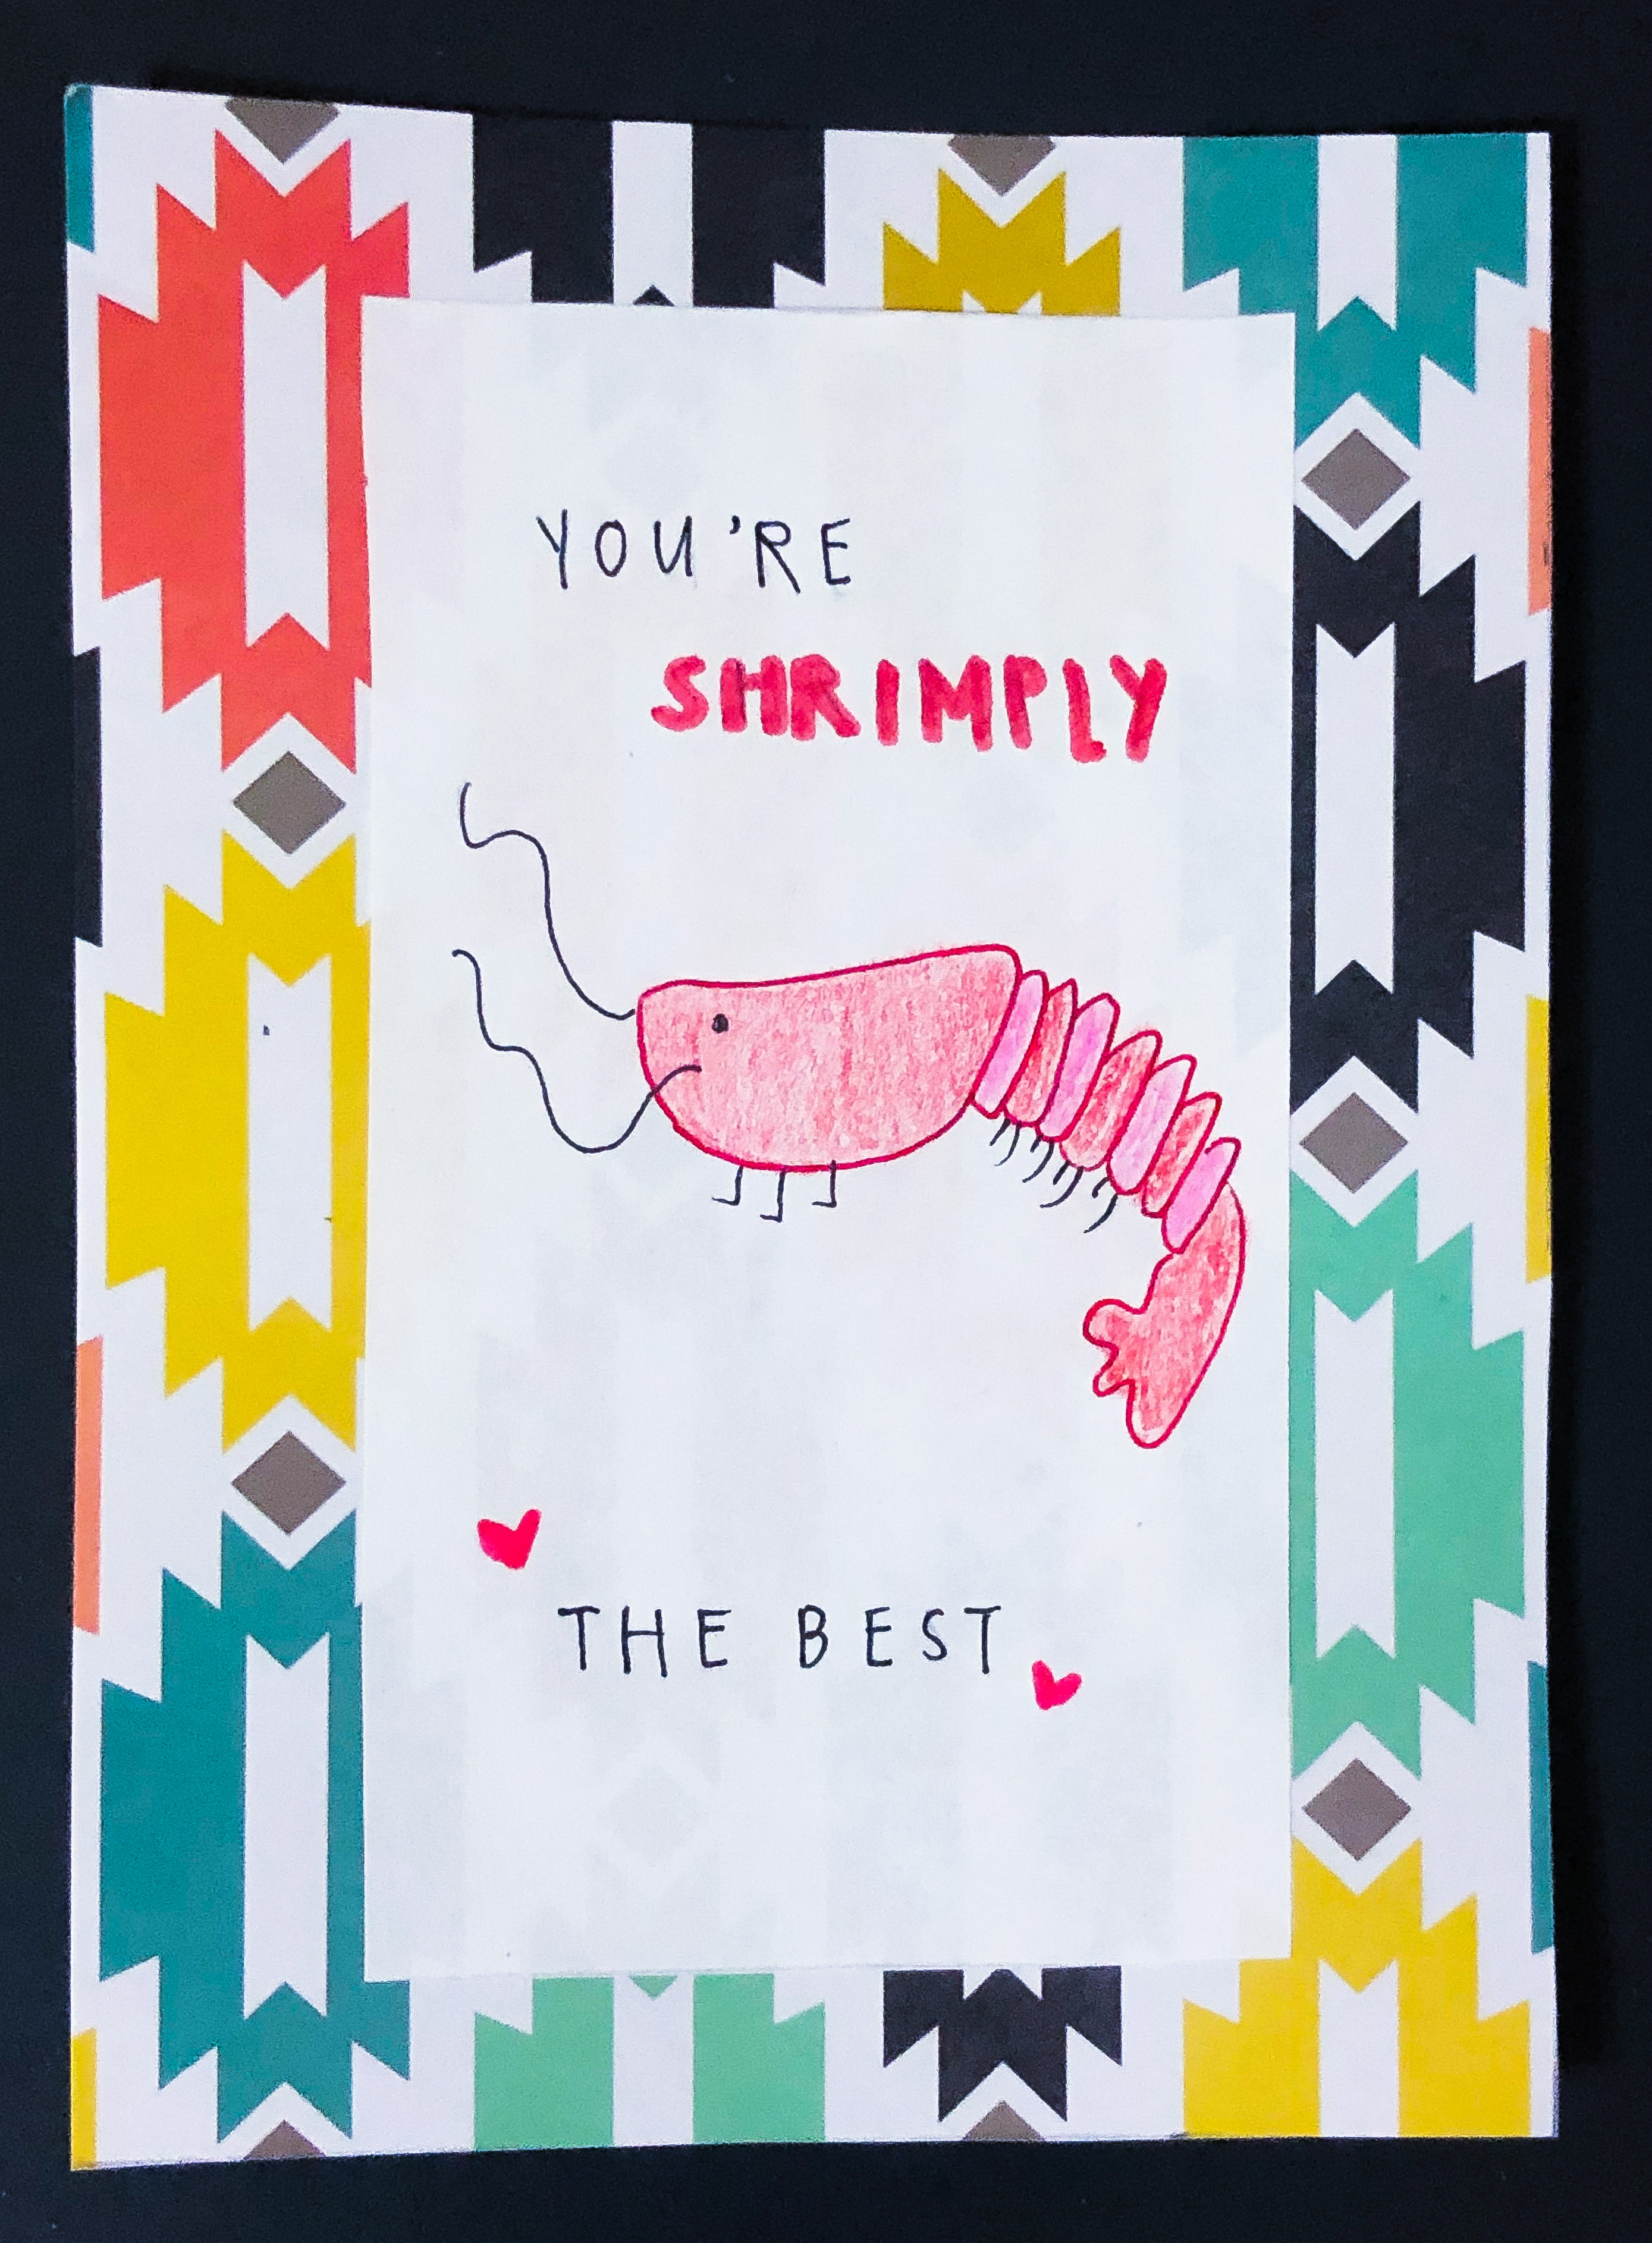 YOU'RE
SHRIMPLY
THE BEST